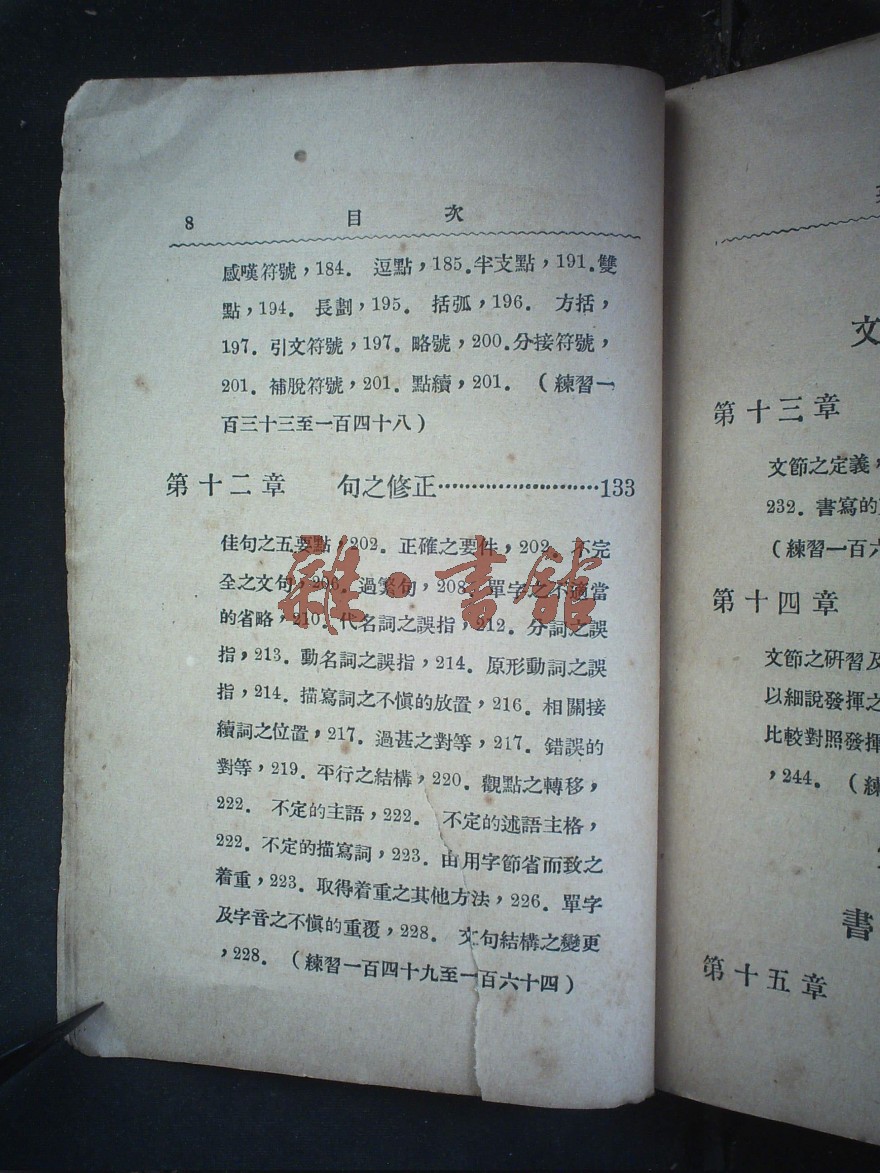 8 目 次
感嘆符號，184． 逗點，185．半支點，191．雙
點，194．長劃，195．括弧，196．方括，
197．引文符號，197．略號，200．分接符號，
201．補脫符號，201．點續，201．（練習一
百三十三至一百四十八）
第十二章 句之修正························133
佳句之五要點，202．正確之要件，202．不完
全之文句，206．過繁句，208．單字之不適當
的省略，210．代名詞之誤指，212．分詞之誤
指，213．動名詞之誤指，214．原形動詞之誤
指，214．描寫詞之不愼的放置，216．相關接
續詞之位置，217．過甚之對等，217．錯誤的
對等，219．平行之結構，220．觀點之轉移，
222．不定的主語，222．不定的述語主格，
222．不定的描寫詞，223．由用字節省而致之
着重，223．取得着重之其他方法，226．單字
及字音之不愼的重覆，228．文句結構之變更
，228．（練習一百四十九至一百六十四）
雜·書館
文
第十三章
文節之定義，
232．書寫的
（練習一百六
第十四章
文節之研習及
以細說發揮之
比較對照發揮
，244．（練
書
第十五章